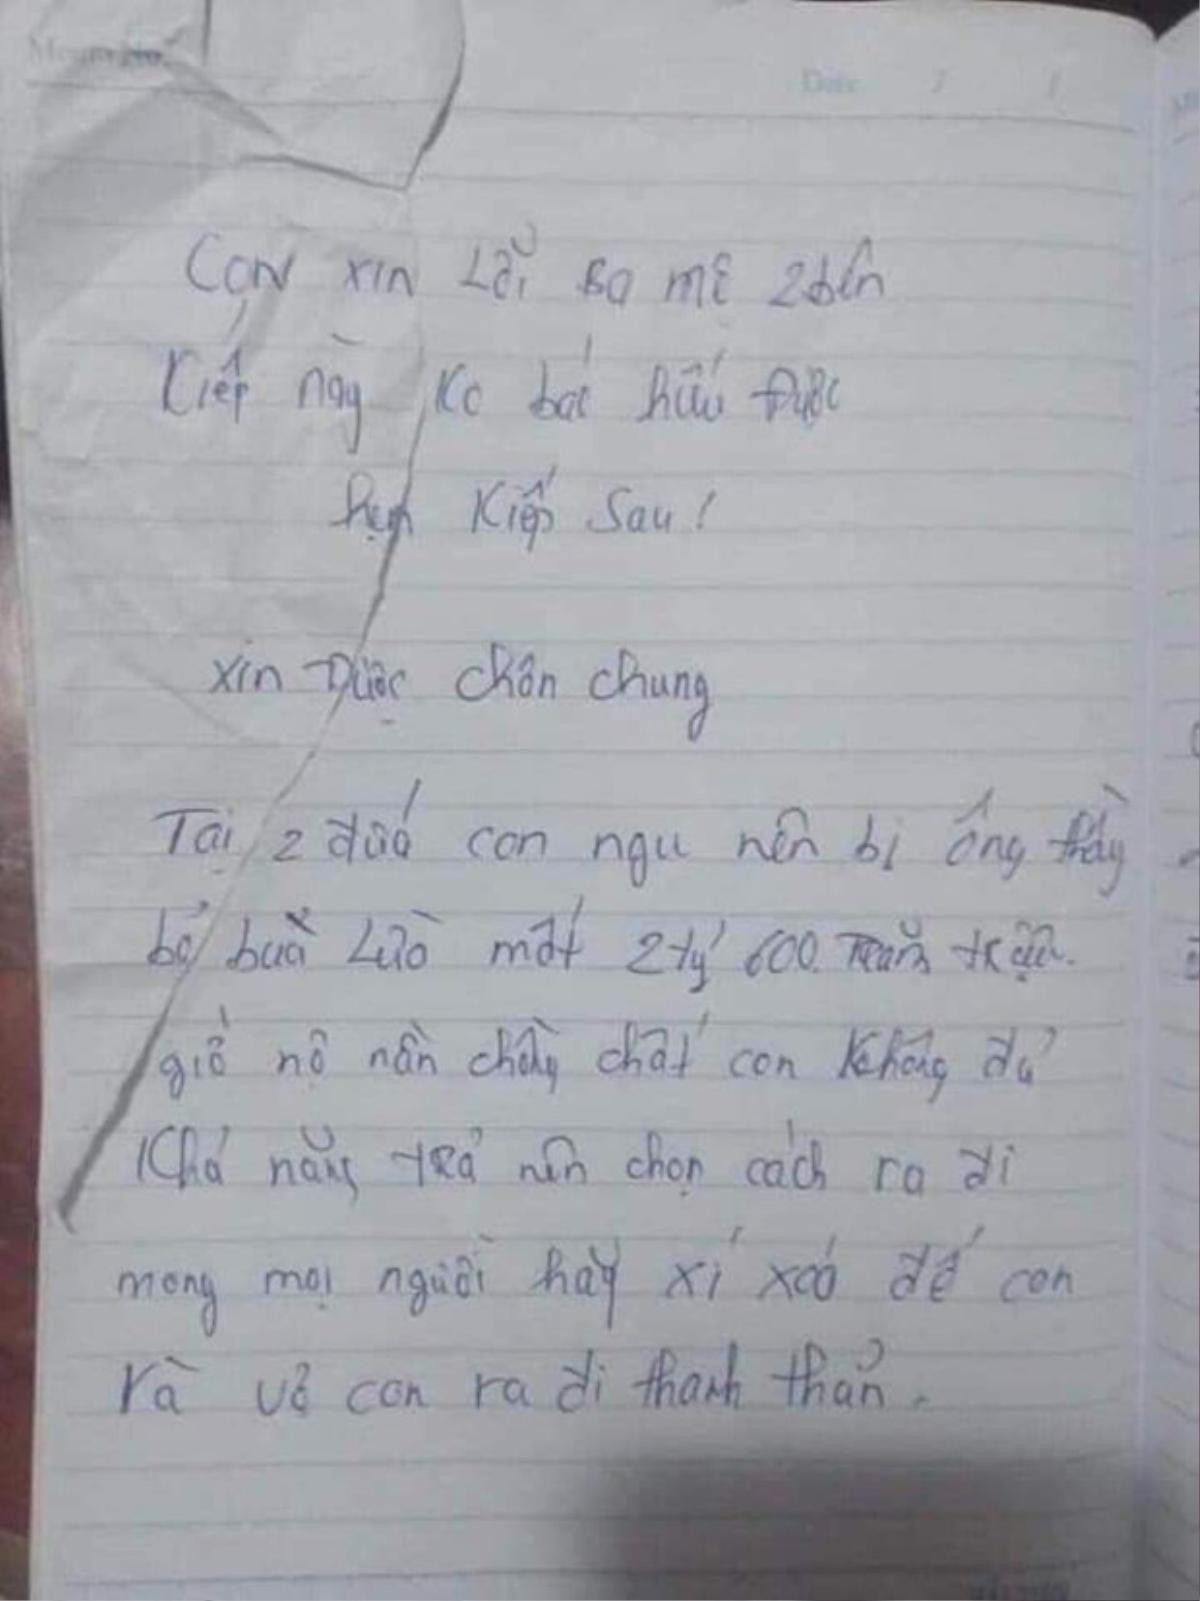 Date / /
Con xin Lỗi Ba mẹ 2 bên
Kiếp này Ko bái hiếu Được
hẹn Kiếp Sau!
xin Được chôn chung
Tại 2 đứa con ngu nên bị ông thầy
bỏ buà Lừa mất 2 tỷ 600 Trăm triệu.
giờ nợ nần chồng chất con Không đủ
Khả năng trả nên chọn cách ra đi
mong mọi người hãy xí xoá để con
và vợ con ra đi thanh thản.